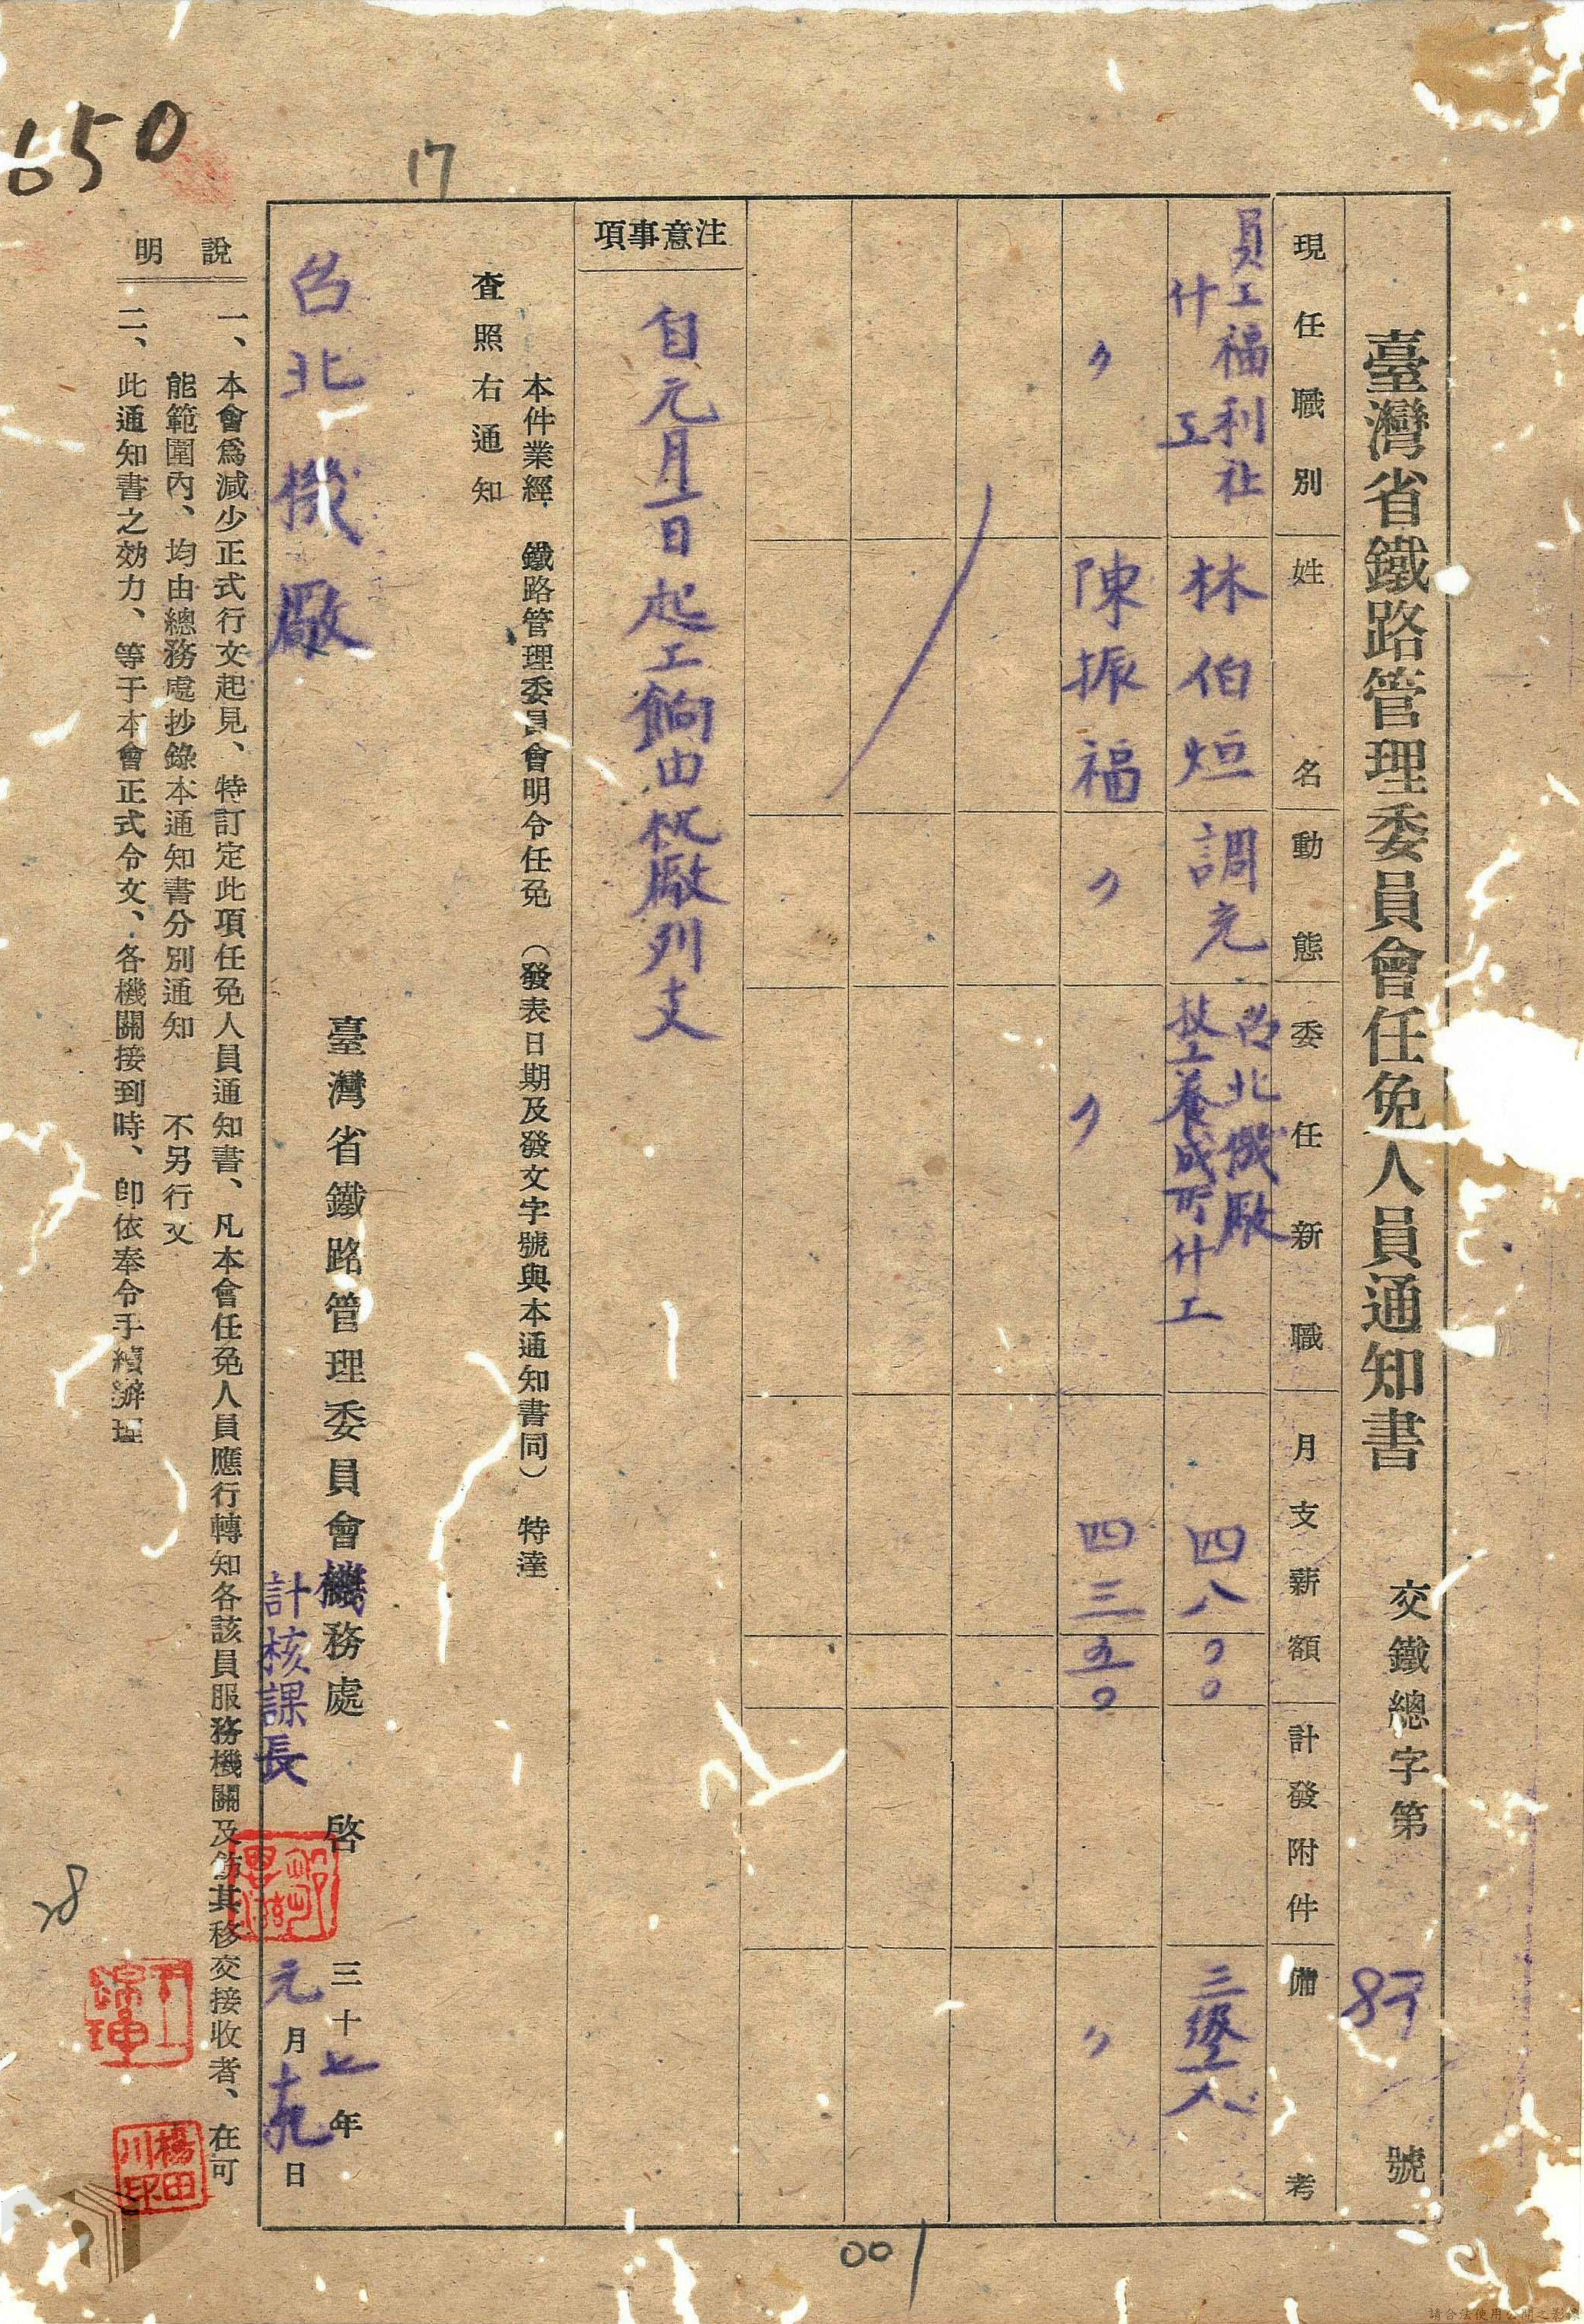 臺灣省鐵路管理委員會任免人員通知書
交鐵總字第 87 號
現任職別 姓名 動態 委任新職 月支薪額 計發附件 備考
員工福利社什工 林伯烜 調充 台北機廠技工養成所什工 四八〇〇 三級工人
〃 陳振福 〃 〃 四三五〇 〃
注意事項
自元月一日起工餉由机廠列支
本件業經 鐵路管理委員會明令任免 (發表日期及發文字號與本通知書同) 特達
查照右通知
台北機廠
臺灣省鐵路管理委員會機務處 啓 三十七年
計核課長 元月十九日
說明
一、本會爲減少正式行文起見、特訂定此項任免人員通知書、凡本會任免人員應行轉知各該員服務機關及飭其移交接收者、在可
能範圍內、均由總務處抄錄本通知書分別通知 不另行文
二、此通知書之効力、等于本會正式令文、各機關接到時、卽依奉令手續辦理
650
17
28
001
楊田川印
請合法使用公開之影像